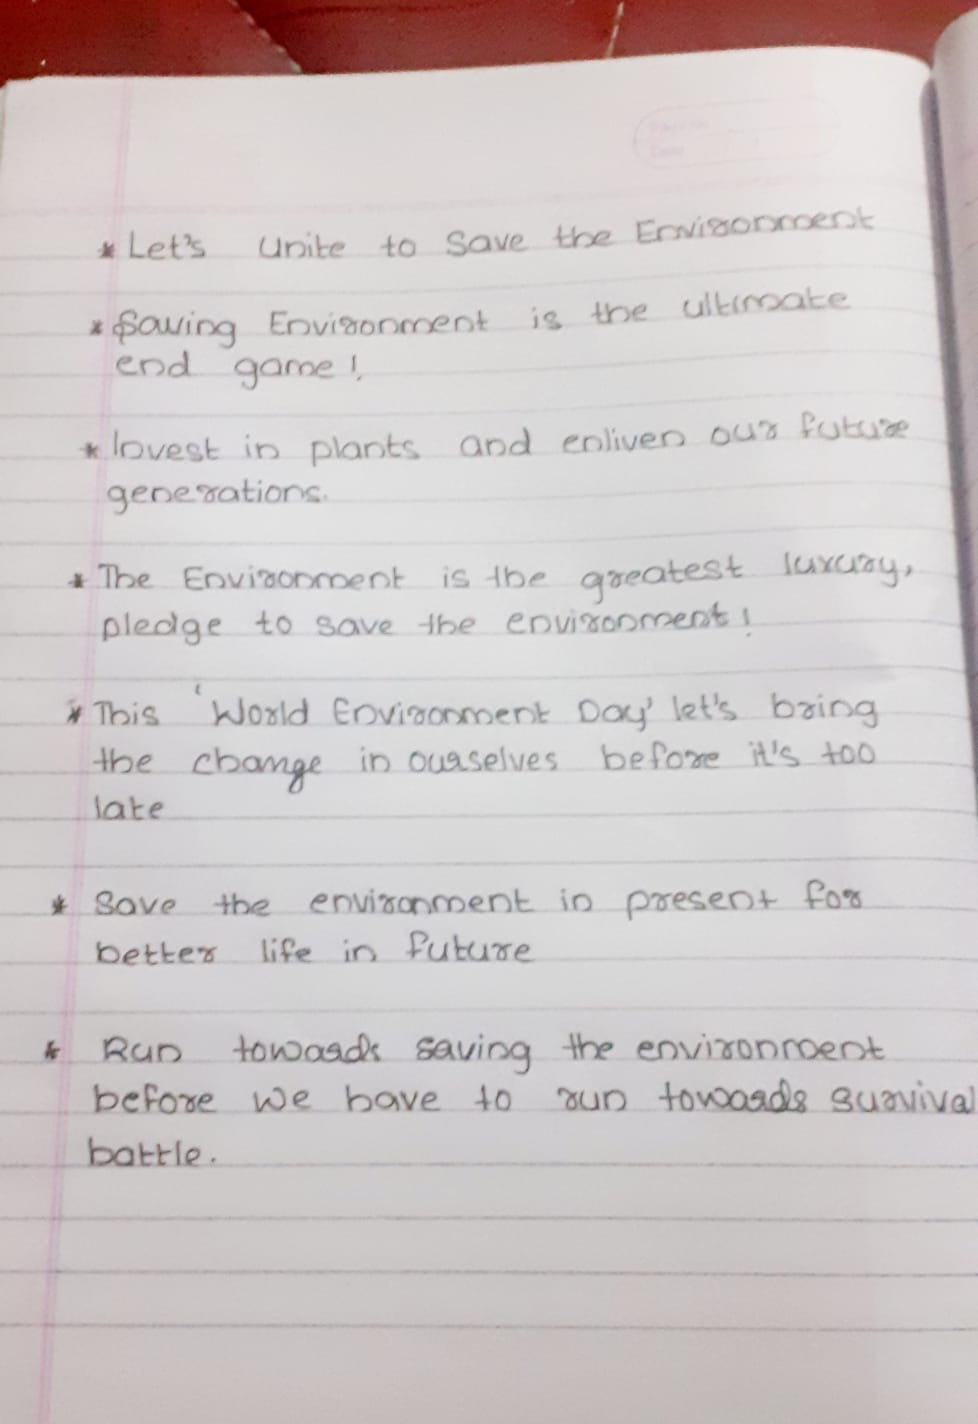 * Let's Unite to Save the Environment
* Saving Environment is the ultimate
end game!
* Invest in plants and enliven our future
generations.
* The Environment is the greatest luxury,
pledge to save the environment!
* This 'World Environment Day' let's bring
the change in ourselves before it's too
late
* Save the environment in present for
better life in future
* Run towards saving the environment
before we have to run towards survival
battle.